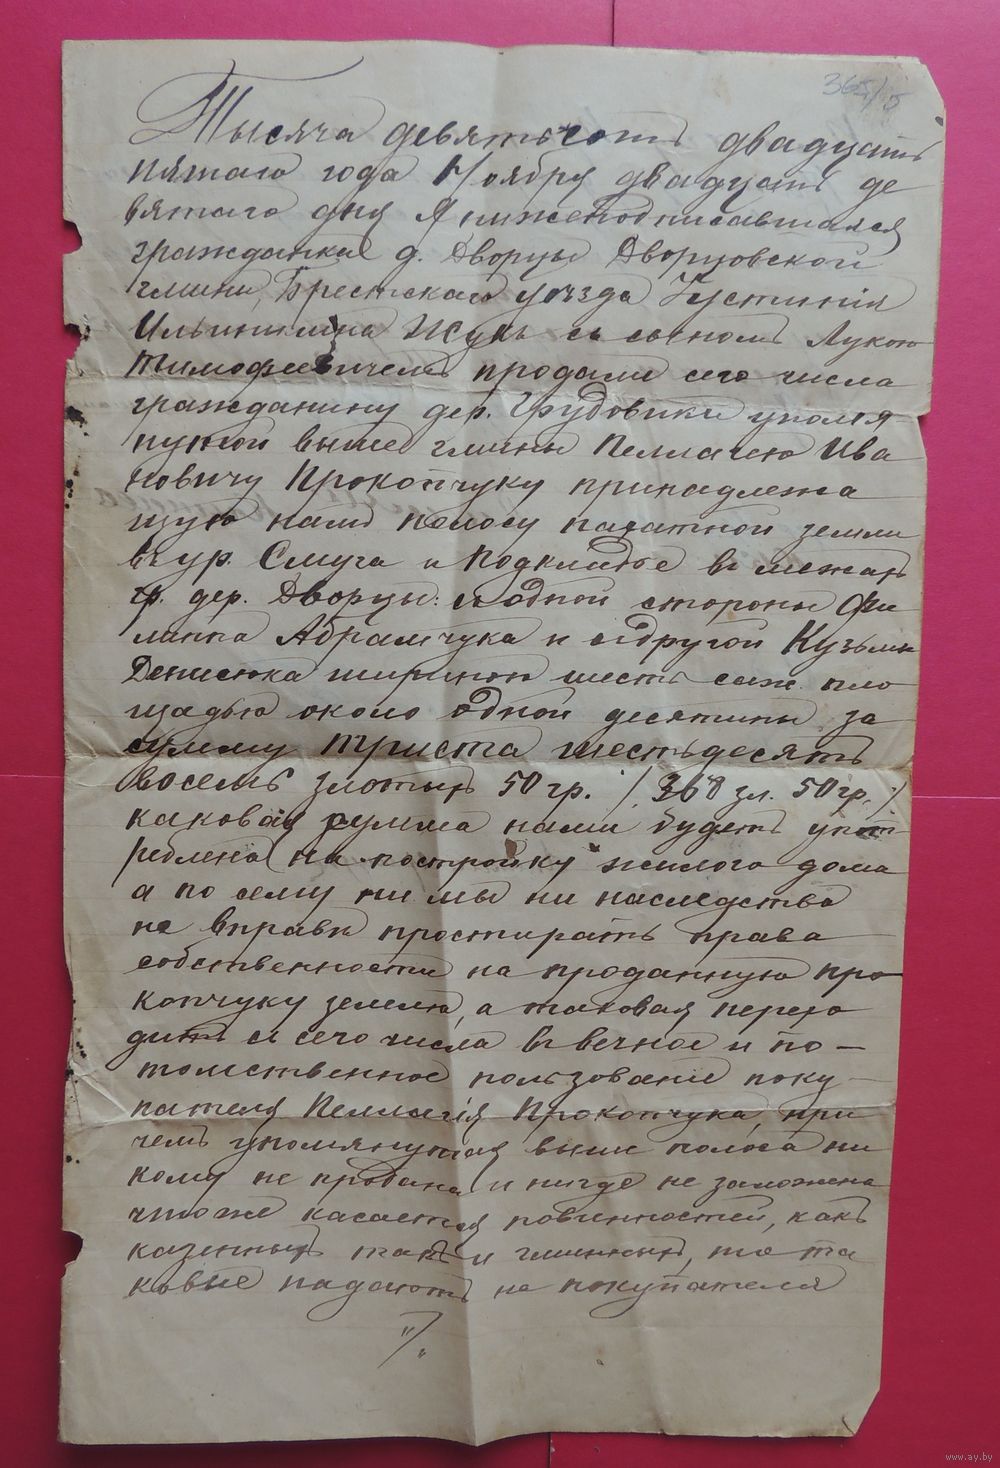 365/5
Тысяча девятьсотъ двадцать
пятаго года Ноября двадцать де
вятаго дня Я нижеподписавшаяся
гражданка д. Дворцы Дворцовской
гмины, Брестскаго уѣзда Густинія
Ильинична Жукъ съ сыномъ Лукою
Тимофеевичемъ продали сего числа
гражданину дер. Грудовики упомя-
нутой выше гмины Пеллагею Ива
новичу Прокопчуку принадлежа
щую намъ полосу пахатной земли
въ ур. Смуга и Подклидье въ межахъ
гр. дер. Дворцы: съ одной стороны Фи
липа Абрамчука и съ другой Кузьмы
Денисюка шириною шесть саж. пло
щадью около одной десятины за
сумму триста шестьдесятъ
восемь злотыхъ 50 гр. /368 зл. 50 гр./
каковая сумма нами будетъ упот
реблена на постройку жилого дома
а по сему ни мы ни наследство
не вправѣ простирать права
собственности на проданную Про
копчуку землю, а таковая перехо
дитъ съ сего числа въ вечное и по-
томственное пользование поку-
пателя Пеллагія Прокопчука, при
чемъ упомянутая выше полоса ни
кому не продана и нигде не заложена
чтоже касается повинностей, какъ
казенныхъ такъ и гминныхъ, то та
ковые падаютъ на покупателя
"/."
www.ay.by